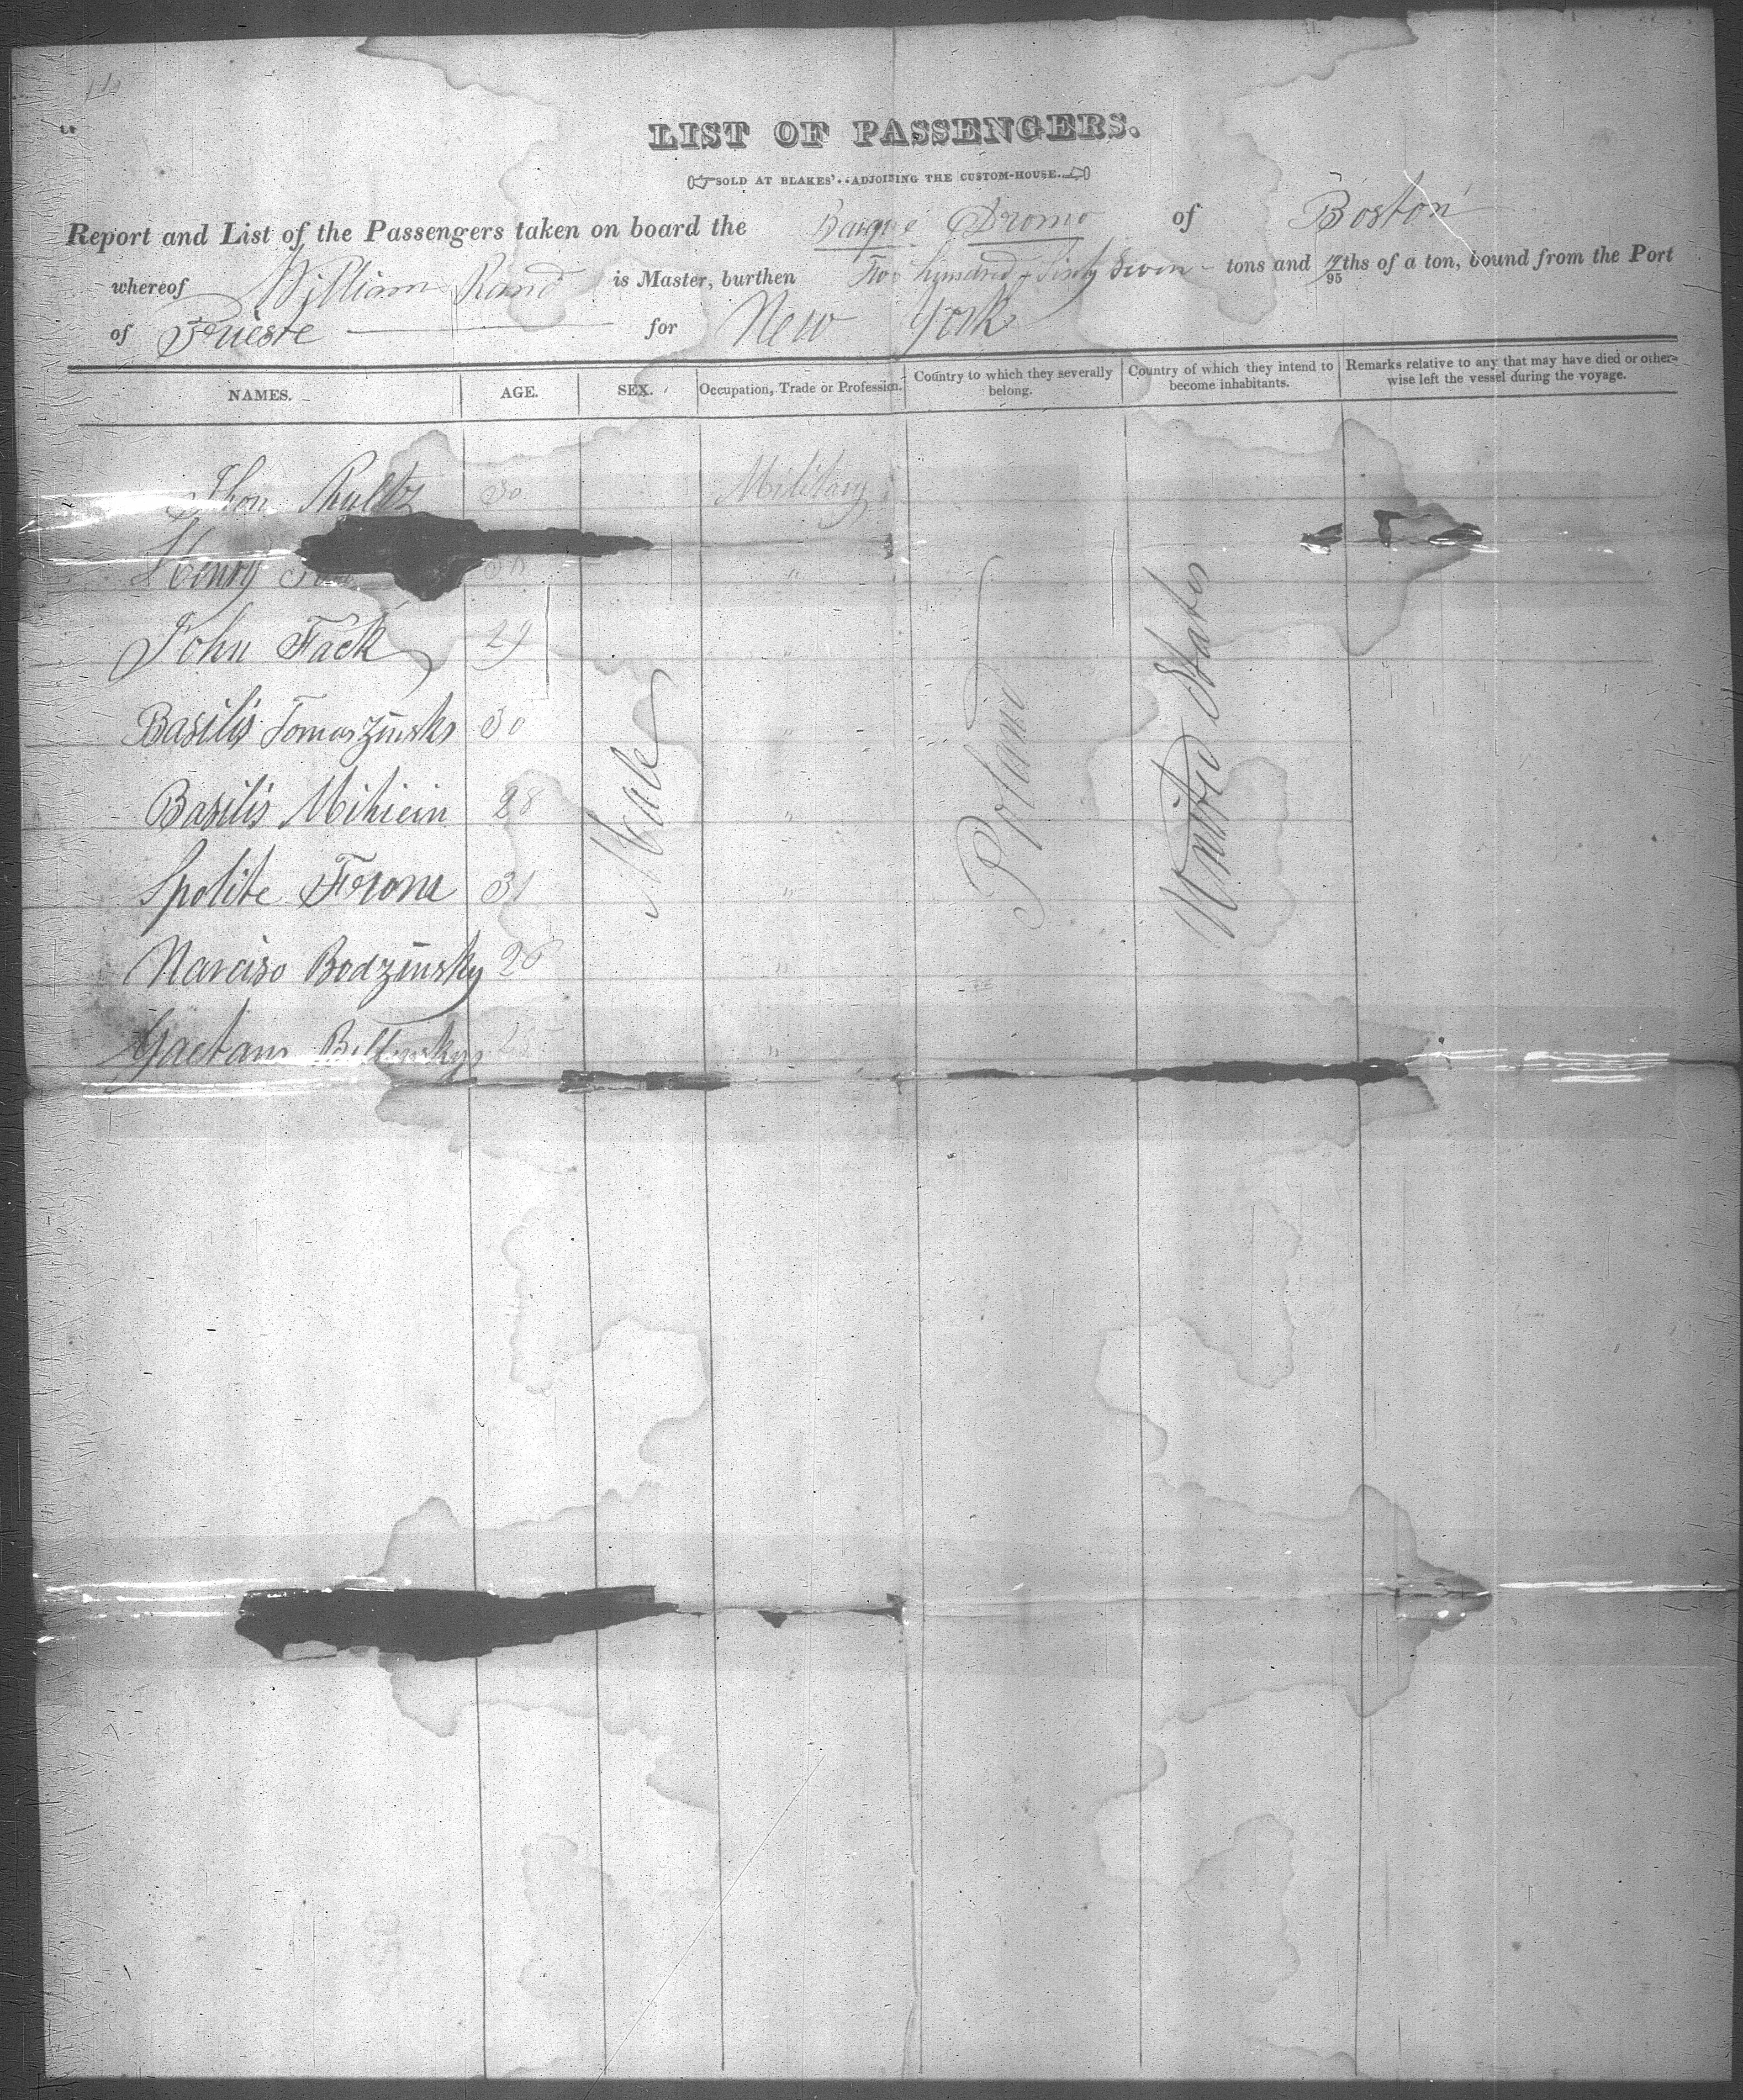 LIST OF PASSENGERS.
SOLD AT BLAKES'..ADJOINING THE CUSTOM-HOUSE.
Report and List of the Passengers taken on board the Barque Dromo of Boston
whereof William Rand is Master, burthen Two hundred & Sixty Seven tons and /95ths of a ton, bound from the Port
of Trieste for New York
NAMES. AGE. SEX. Occupation, Trade or Profession. Country to which they severally belong. Country of which they intend to become inhabitants. Remarks relative to any that may have died or otherwise left the vessel during the voyage.
Jhon Rultz 30 Military
Henry 30 "
John Fack 29 "
Basilis Tomaszinsks 30 "
Basilis Mihiein 28 "
Spolite Frome 31 "
Narciso Bodzinsky 26 "
Gaetano "
Male
Poland
United States